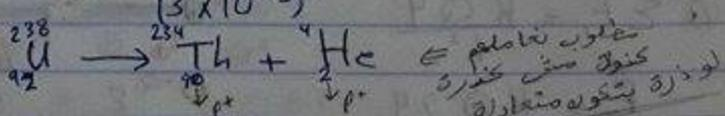 (3 × 10
²³⁸₉₂U → ²³⁴₉₀Th + ⁴₂He ⇐ مطلوب نعاملهم
↓p+ ↓p+ كنواة مش كذرة
لو ذرة بتكون متعادلة